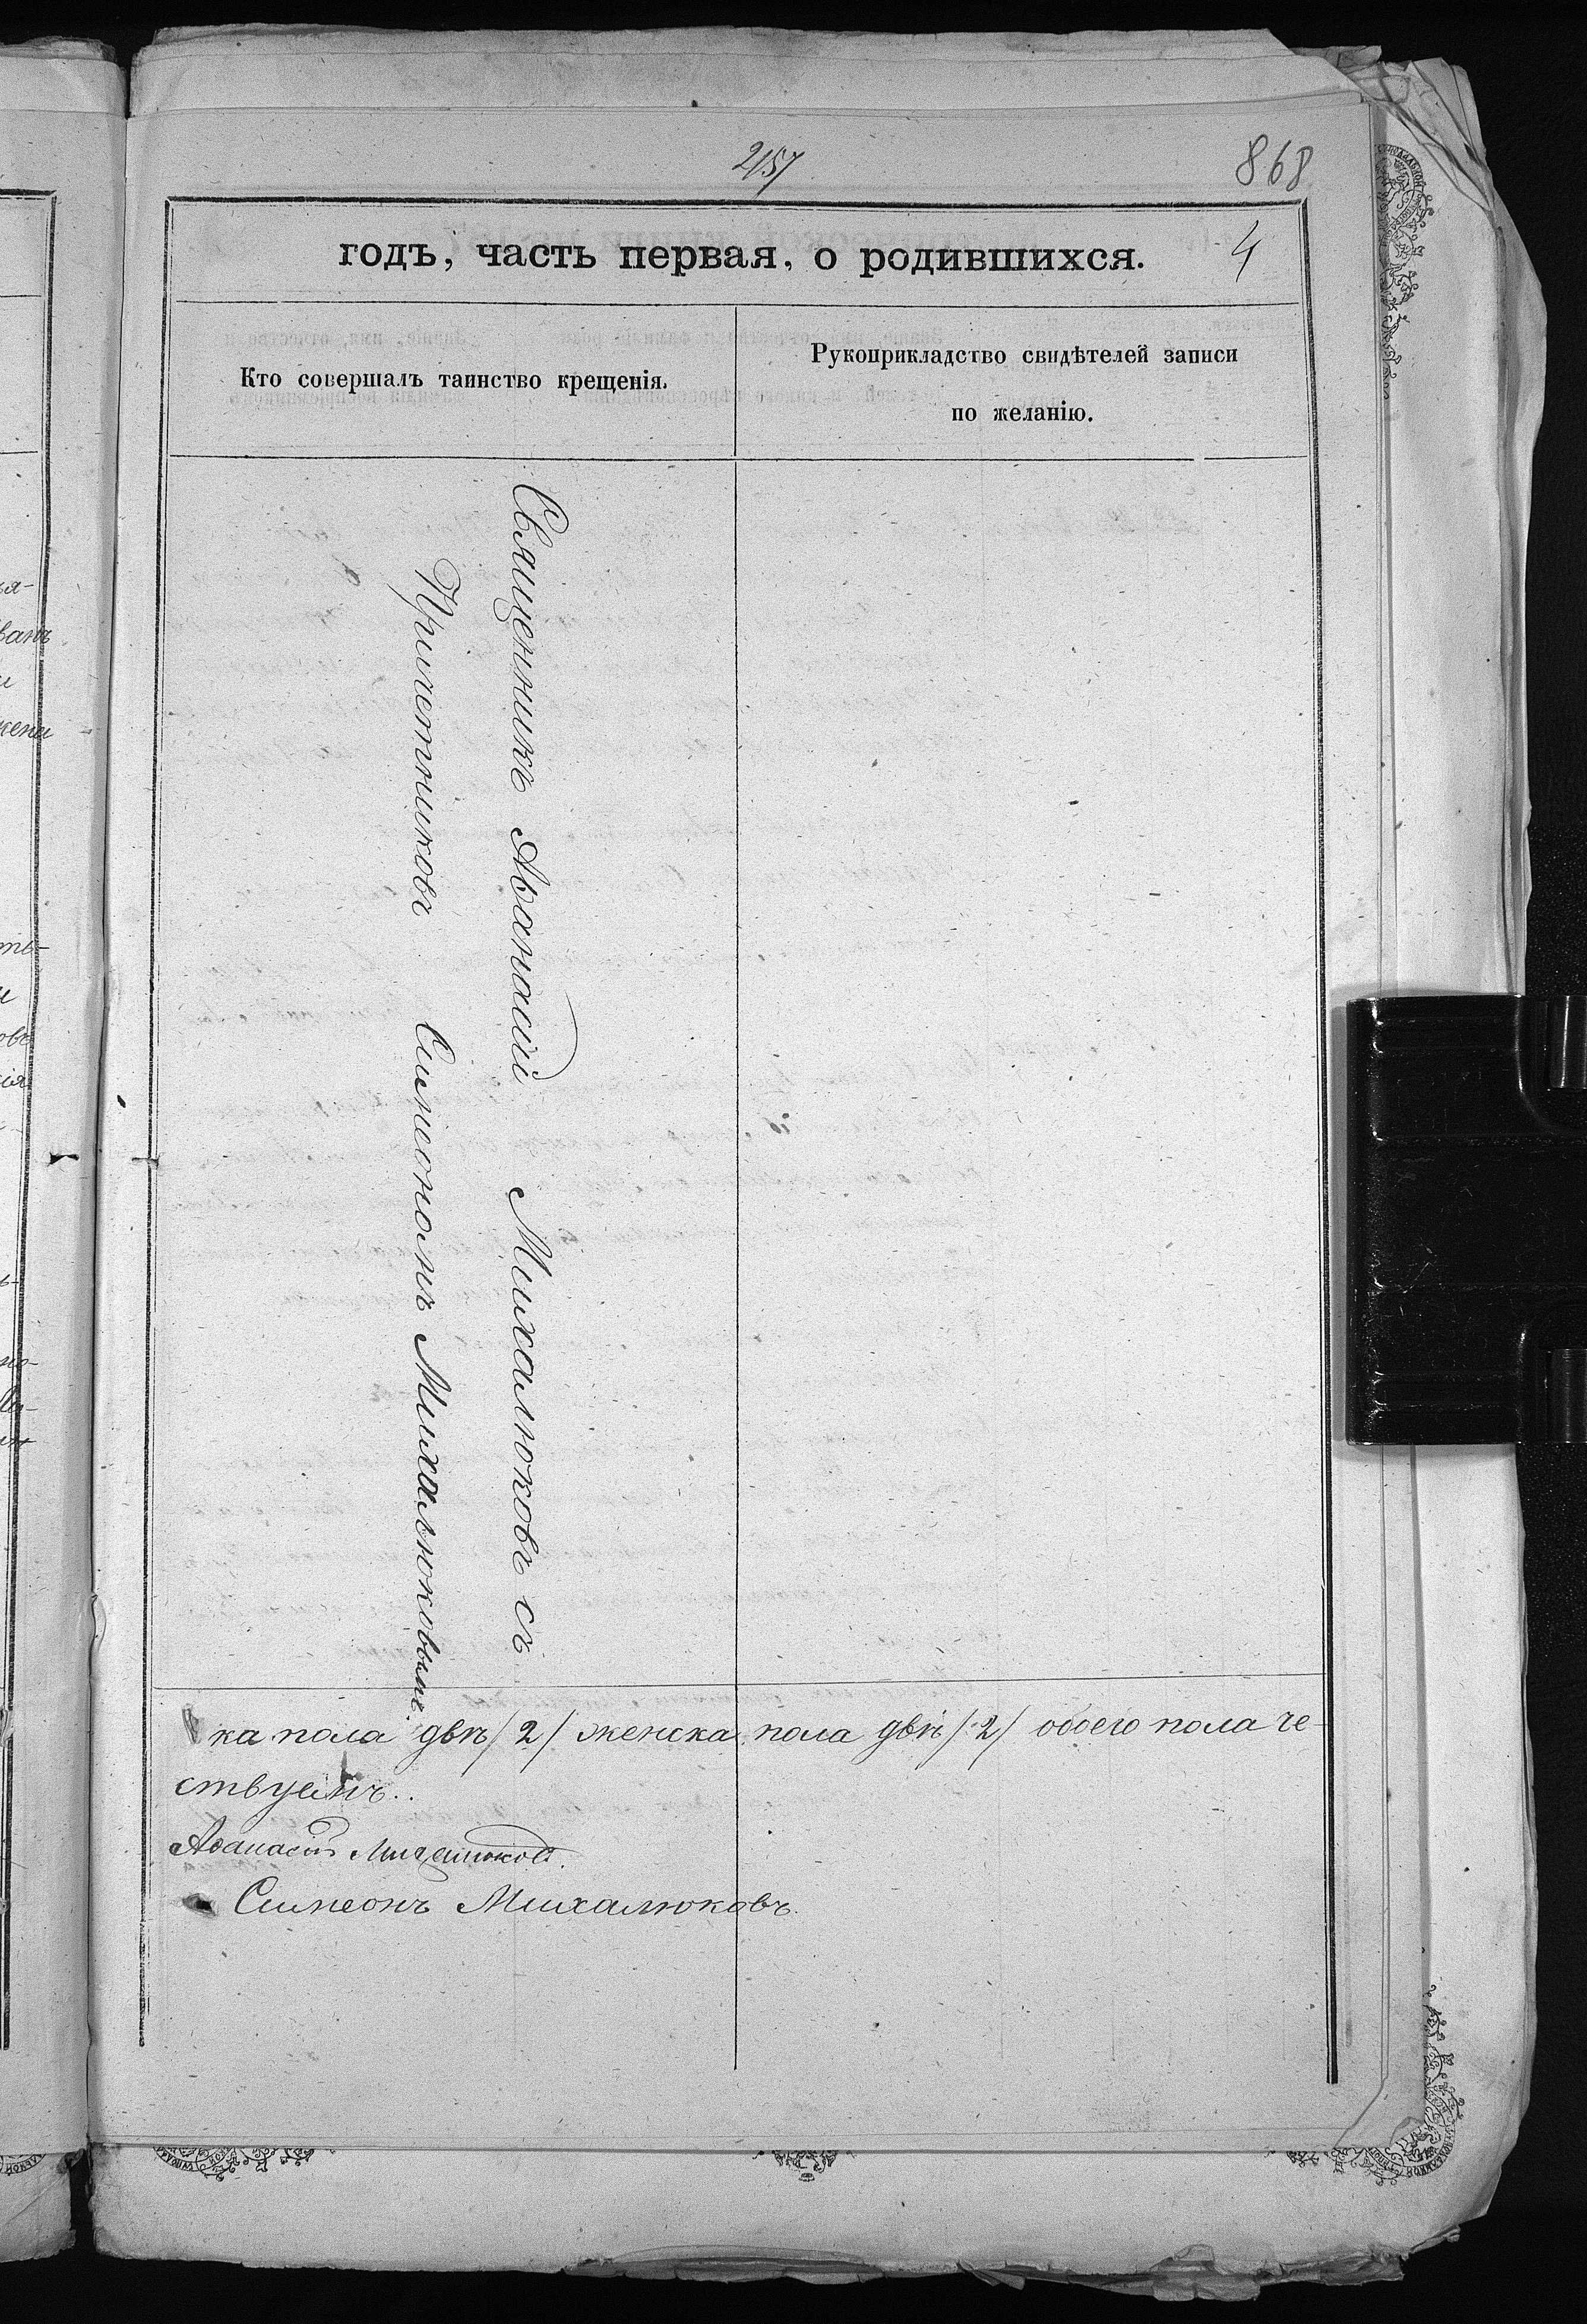 2157
868
годъ, часть первая, о родившихся.
4
Кто совершалъ таинство крещенія.
Рукоприкладство свидѣтелей записи
по желанію.
Священникъ Аѳанасій Михалюковъ съ
Причетникомъ Симеономъ Михалюковымъ.
ка пола двѣ /2/ женска пола двѣ /2/ обоего пола че-
ствуемъ..
Аѳанасій Михалюковъ.
Симеонъ Михалюковъ.